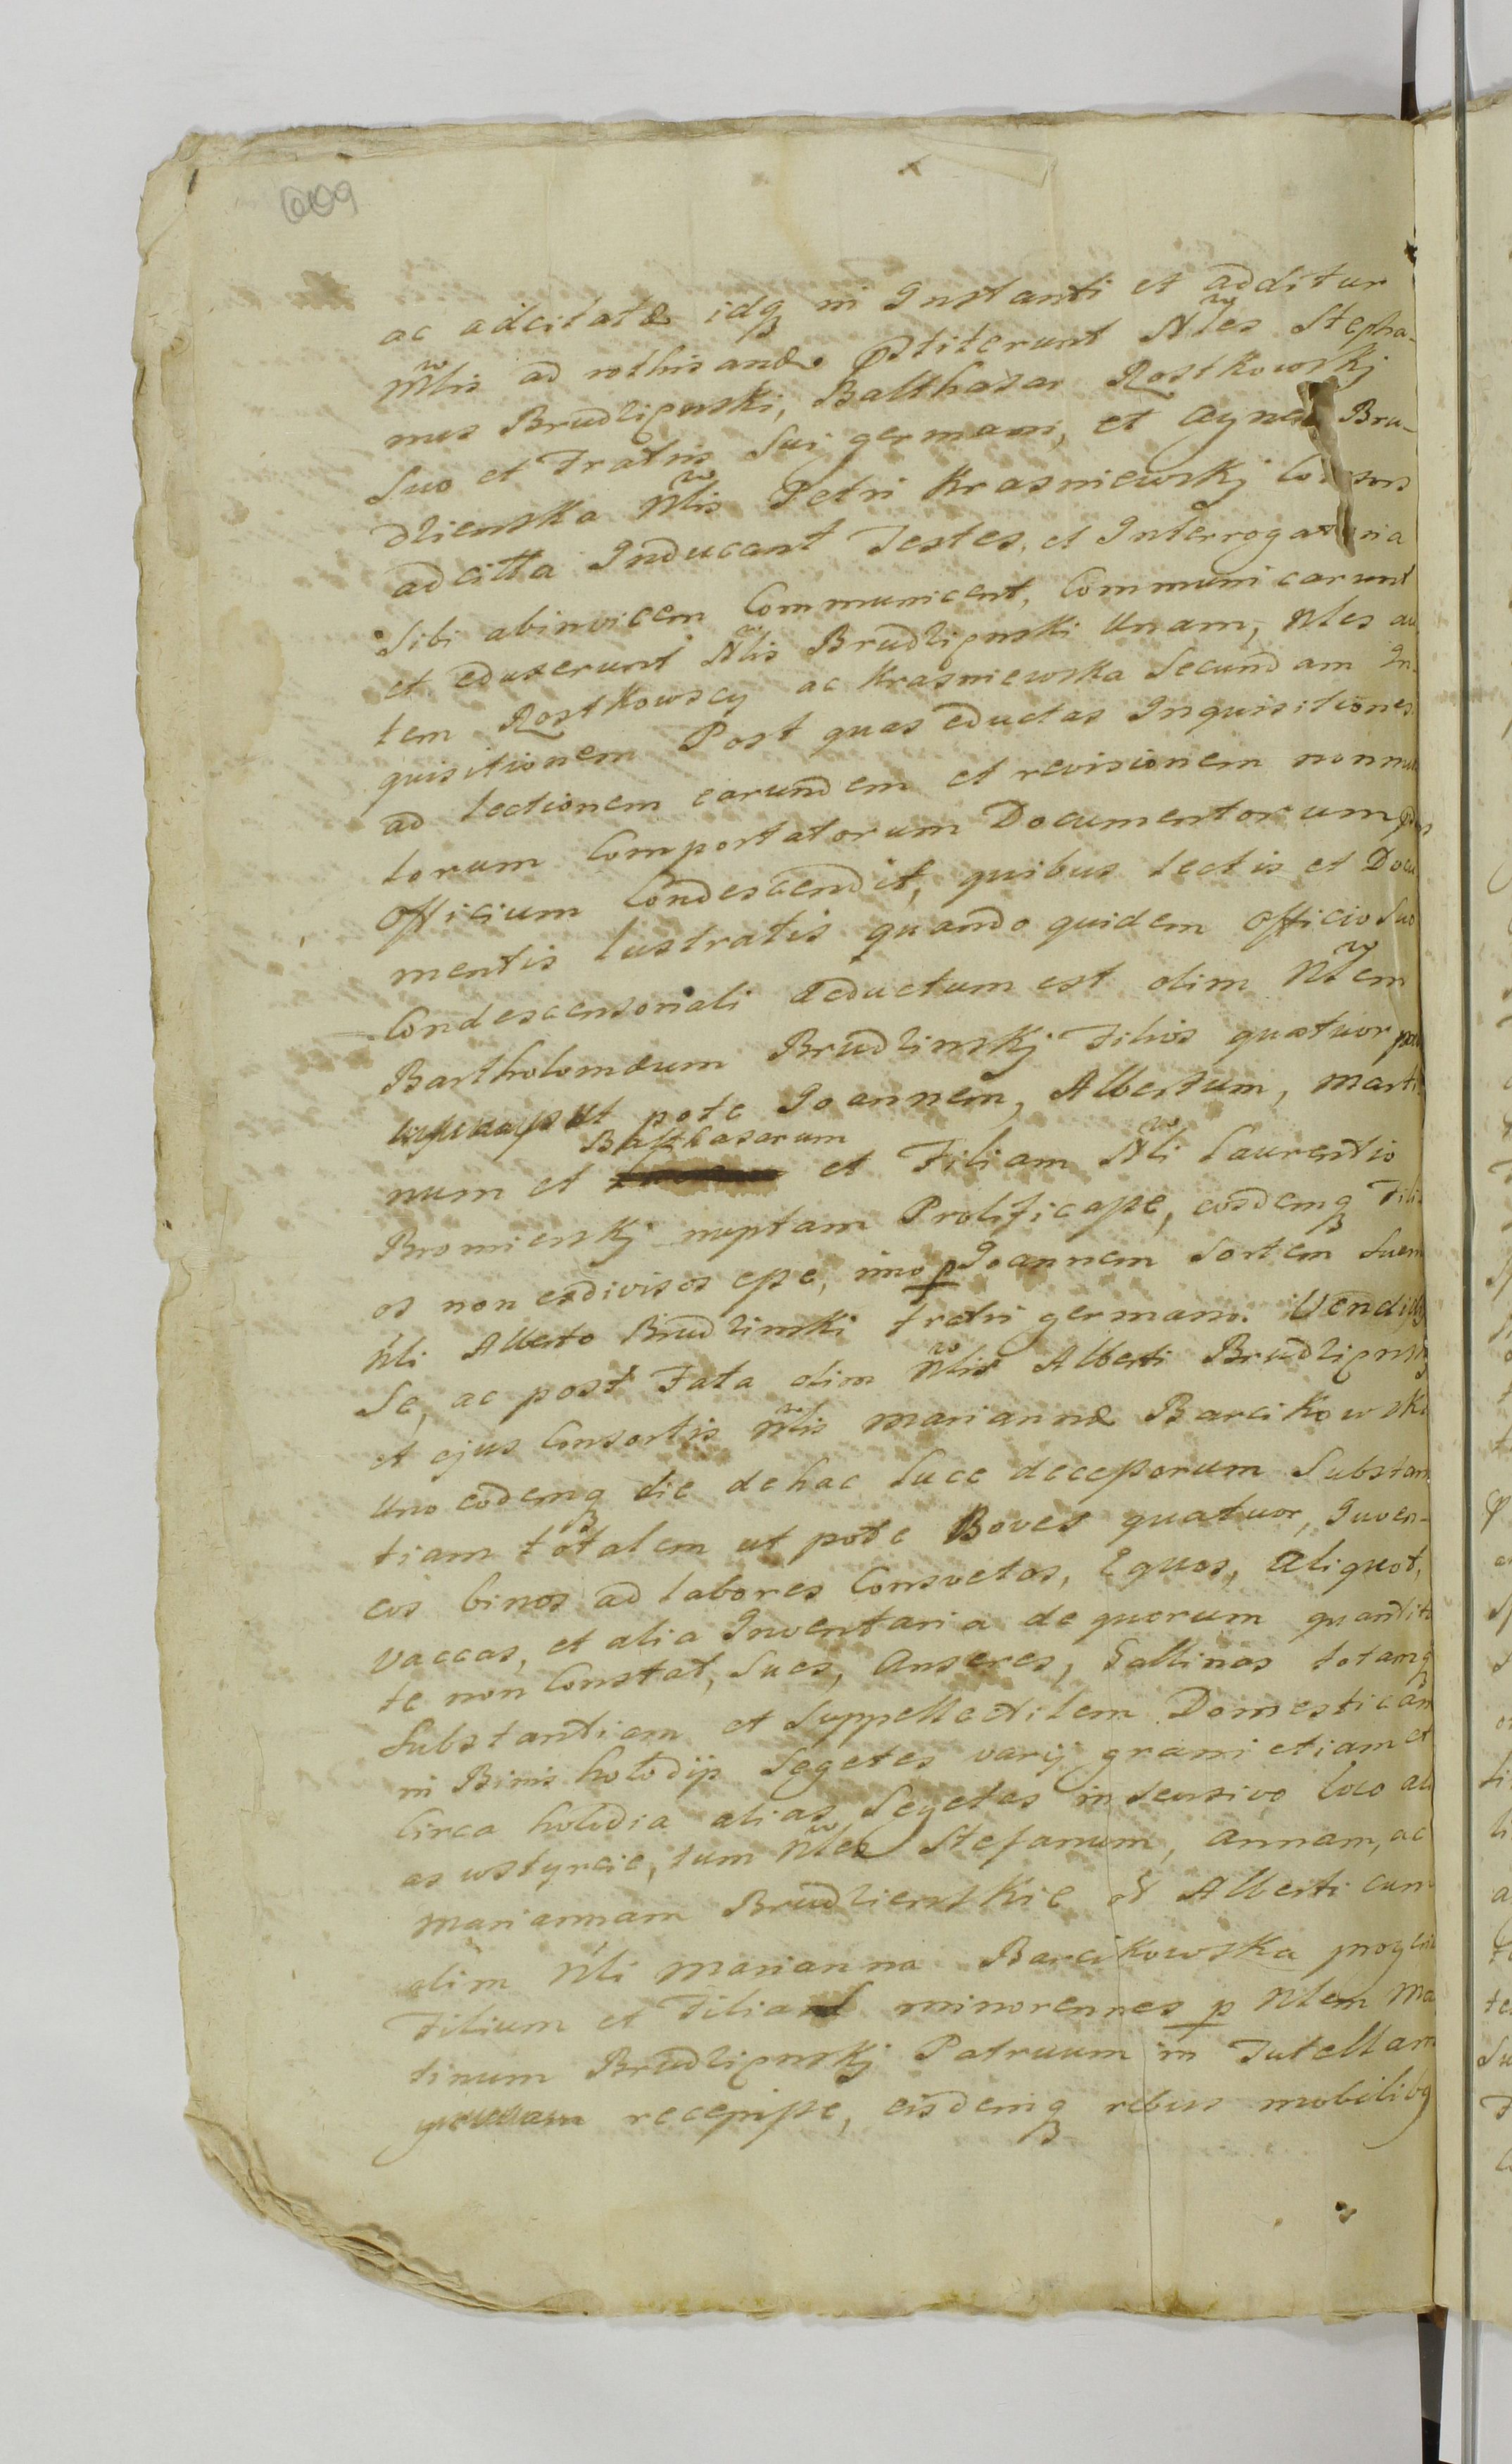 609
ac adcitatæ idq in Instanti et additur
Nlis ad rothisandæ pstiterunt Nles Stepha-
nus Brudzipnski, Balthasar Rostkowskj
Suo et Fratris Sui germani, et Agnes Bru-
dzienska Nlis Petri Krasniewskj Consors
adcitta Inducant Testes, et Interrogatoria
Sibi abinvicem Communicent, Communicarunt
et eduxerunt Nlis Brudzipnski Unam, Nles au
tem Rostkowscy ac Krasniewska Secundam In-
quisitionem Post quas eductas Inquisitiones
ad lectionem earundem et revisionem nonnul
lorum Comportatorum Documentorum
Officium Condescendit, quibus lectis et Docu
mentis lustratis quando quidem Officio Suo
Condescensoriali deductum est olim Nlem
Bartholomæum Brudzinskj Filios quatuor
Ut pote Joannem, Albertum, Marti
Balthasarum
num et et Filiam Nli Laurentio
Bromierskj nuptam Prolificasse, eosdemq Fili
os non exdivisos esse, imo p Joannem Sortem Suam
Nli Alberto Brudzinski Fratri germano Vendidis
Se, ac post Fata olim Nlis Alberti Brudzipnskj
et ejus Consortis Nlis Mariannæ Barcikowski
Uno eodemq die de hac luce decessorum Substan
tiam totalem ut pote Boves quatuor, Juven-
cos binos ad labores Consvetos, Equos, Aliquot,
Vaccas, et alia Inventaria de quorum quantita
te non Constat, Sues, Anseres, Gallinas totamq
Substantiam et Suppellectilem Domesticam
in Binis holodijs Segetes varij grani etiam et
Circa holodia alias Segetas in sensivo loco ali
as wstyrcie, tum Nles Stefanum, Annam, ac
Mariannam Brudzienskie et Alberti cum
olim Nli Marianna Barcikowska
Filium et Filias minorennes p Nlem Ma
tinum Brudzipnskj Patruum in Tutellam
recepisse, eisdemq rebus mobilibq